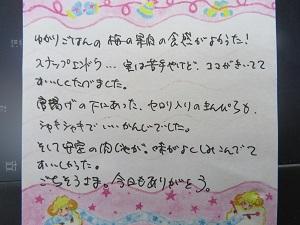 ゆかりごはんの梅の果肉の食感がよかった!
スナップエンドウ…実は苦手やけど、ゴマがきいてて
おいしくたべました。
唐揚げの下にあった、セロリ入りのきんぴらも、
シャキシャキでいいかんじでした。
そして安定の肉じゃが。味がよくしみこんでて
おいしかった。
ごちそうさま。今日もありがとう。